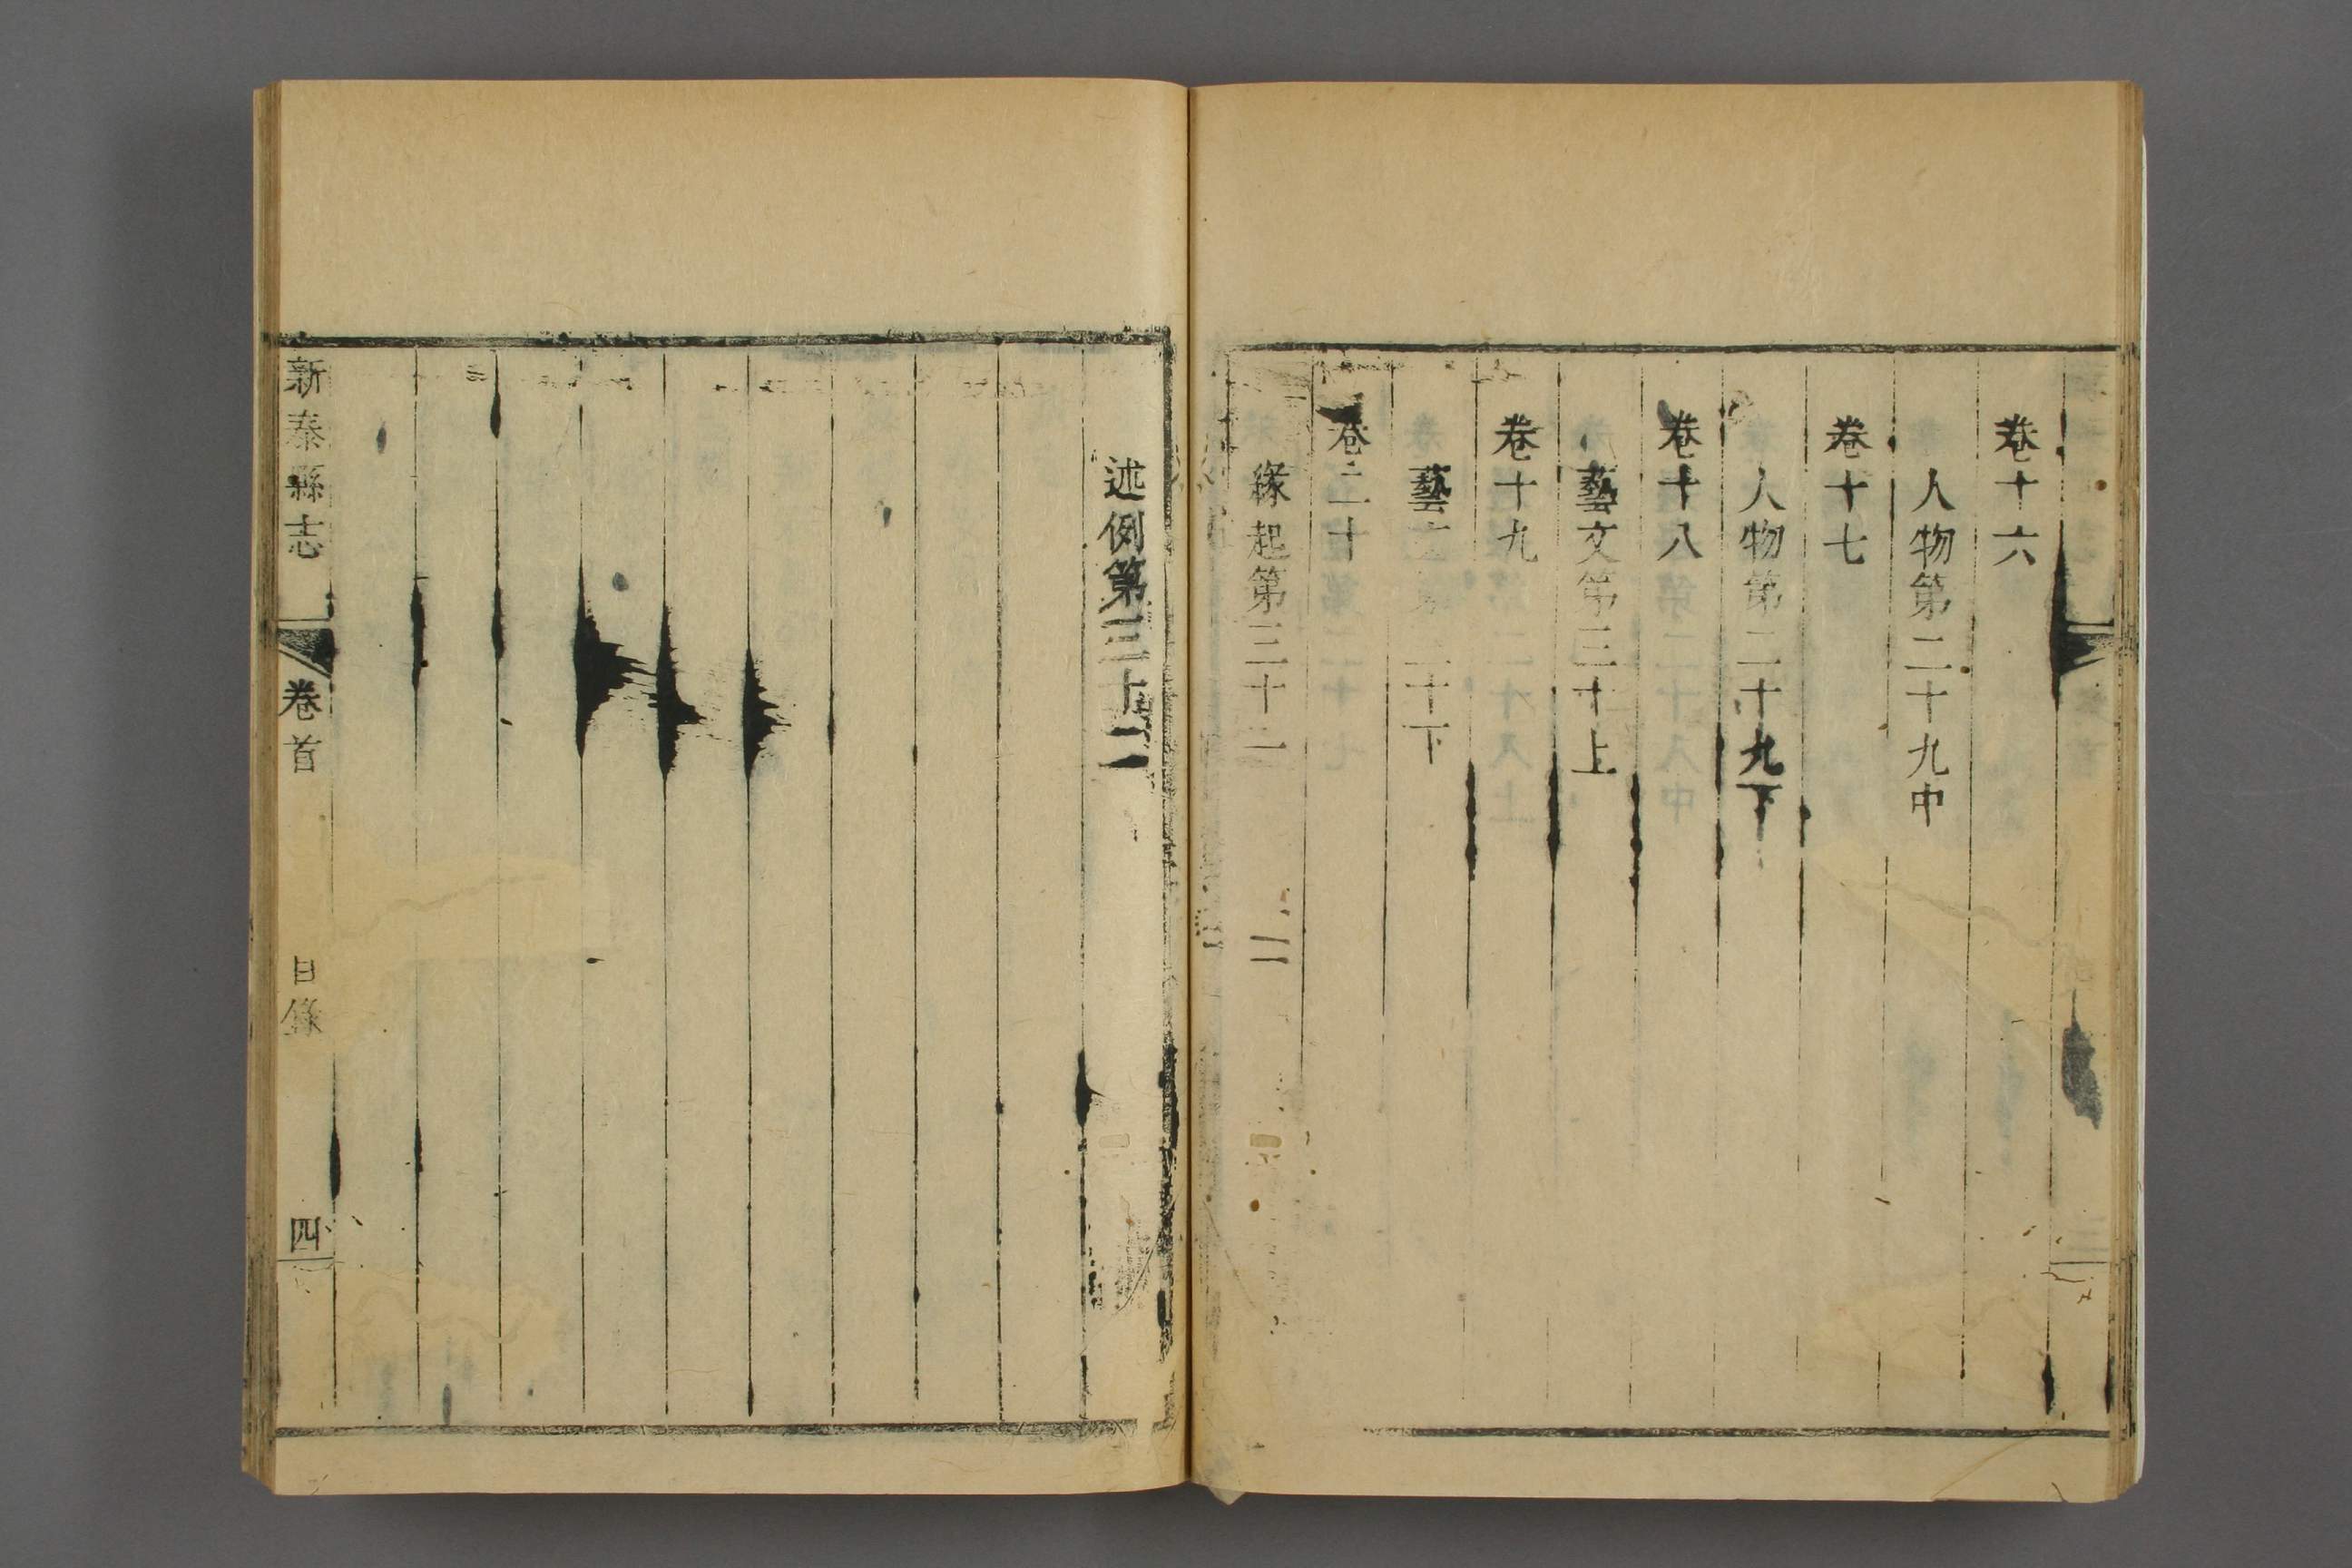 卷十六
人物第二十九中
卷十七
人物第二十九下
卷十八
藝文第三十上
卷十九
藝文第三十下
卷二十
緣起第三十一
述例第三十二
新泰縣志
卷首
目錄
四